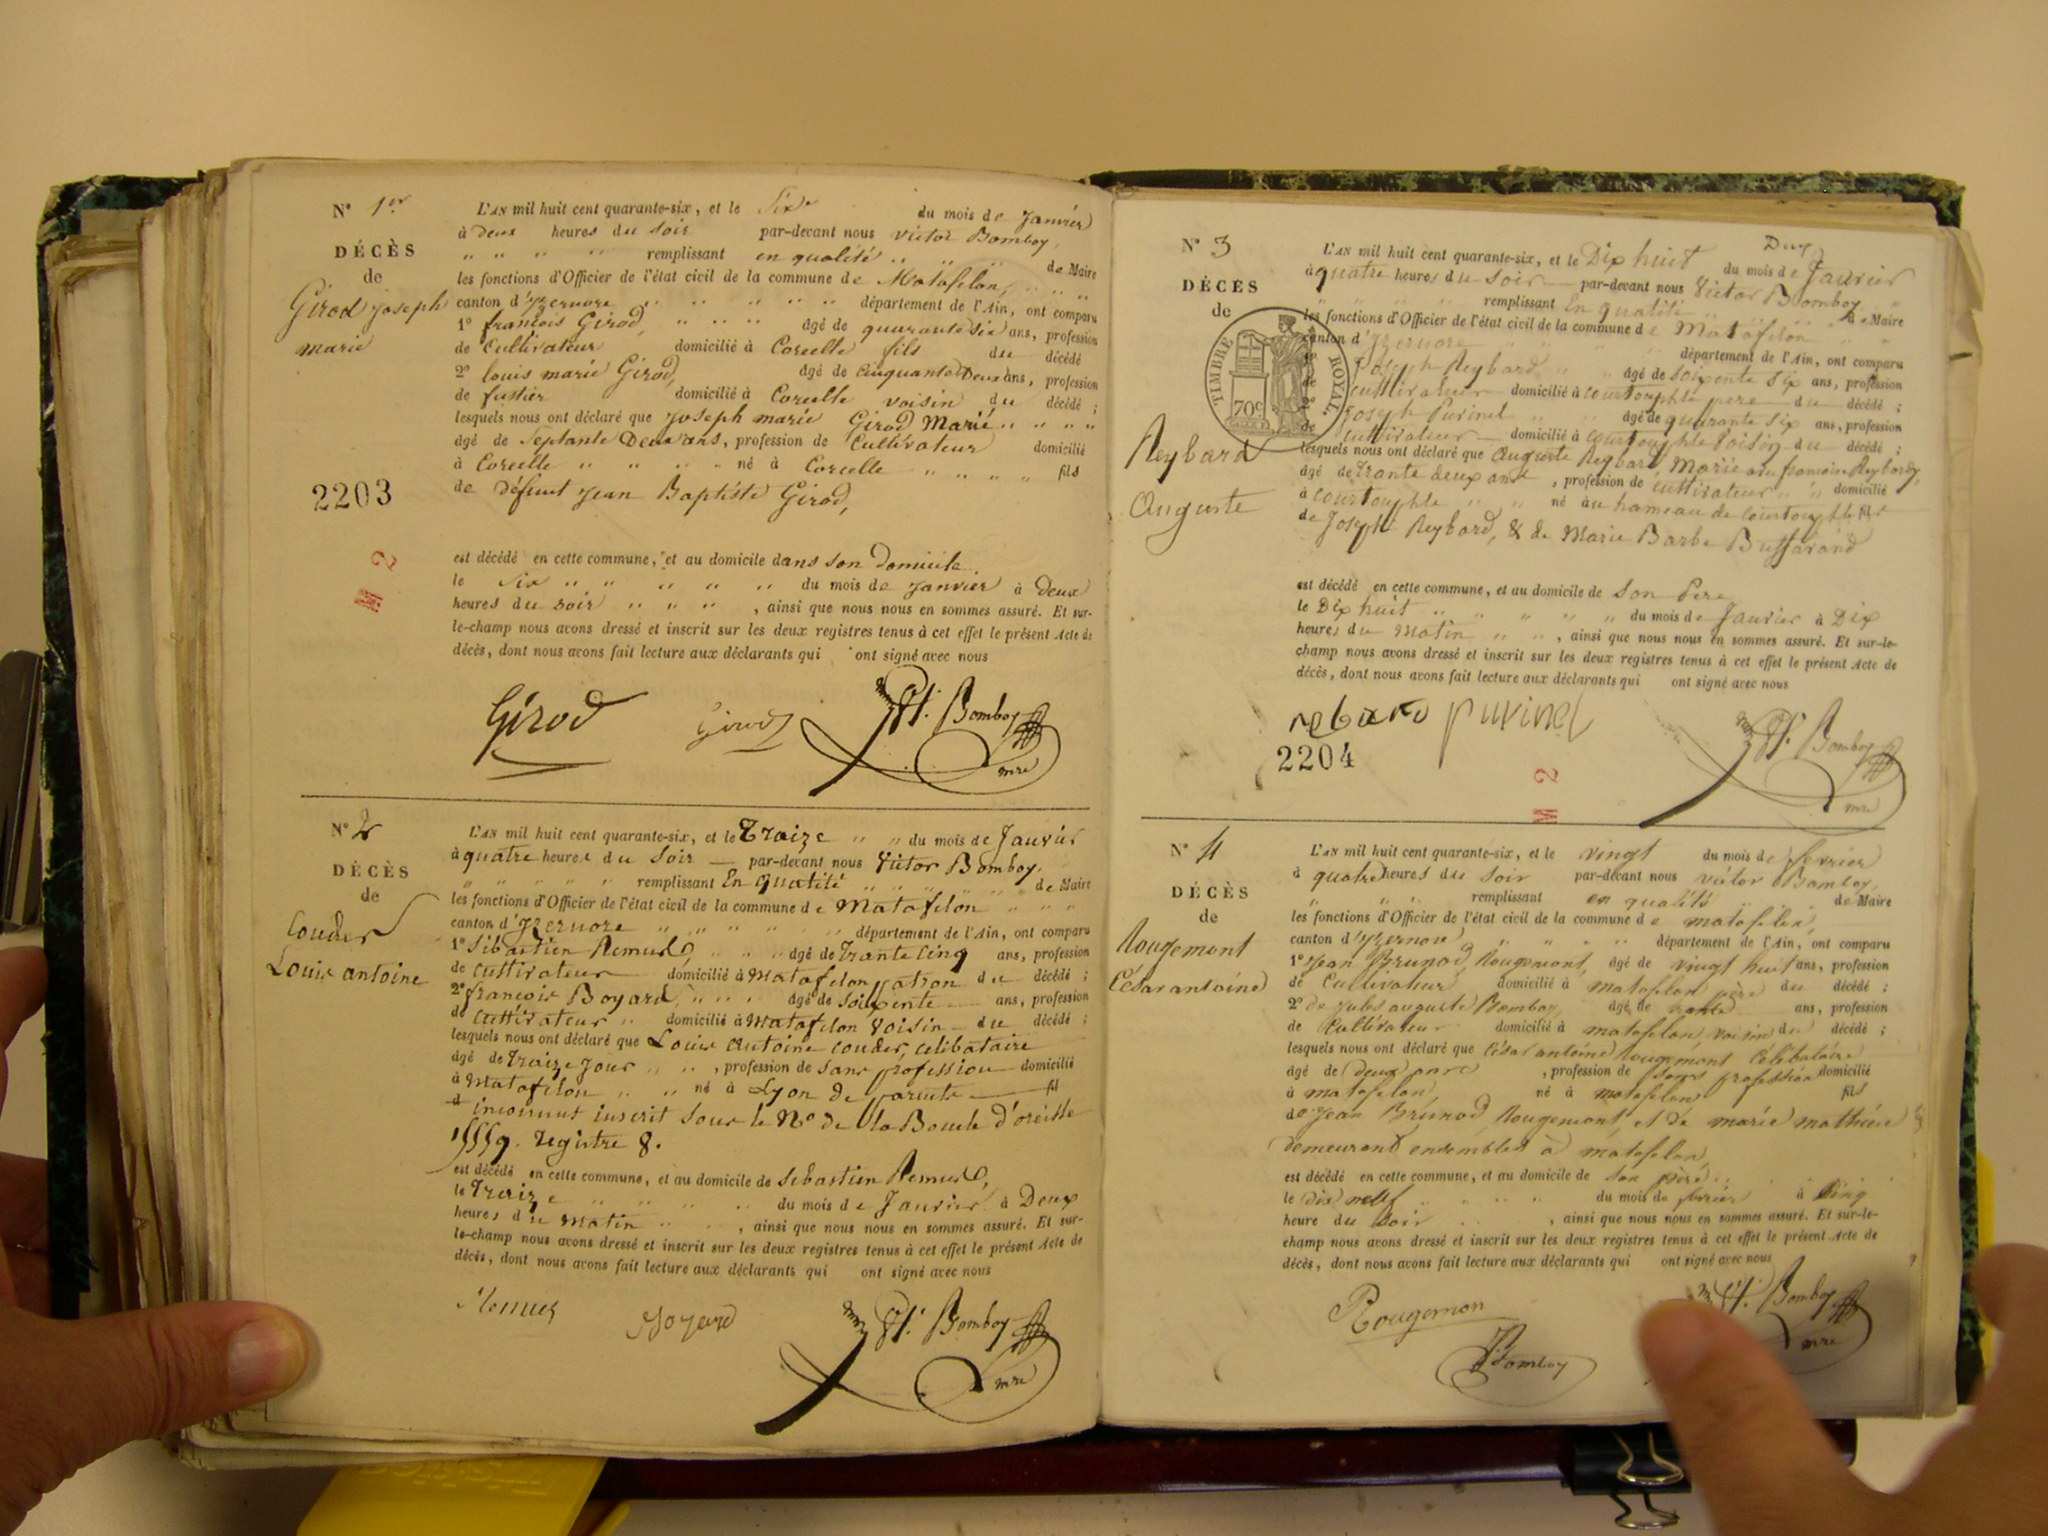 N° 1er
DÉCÈS
de
Girod joseph
marie
2203
L'AN mil huit cent quarante-six, et le Six du mois de janvier
à deux heures du soir par-devant nous victor Bomboy,
" " " " remplissant en qualité " " de Maire
les fonctions d'Officier de l'état civil de la commune de Matafelon, " " "
canton d'yzernore " " " " " département de l'Ain, ont comparu
1° françois Girod, " " " âgé de quarante six ans, profession
de Cultivateur domicilié à Corcelle fils du décédé
2° louis marie Girod, âgé de cinquante Deux ans, profession
de fustier domicilié à Corcelle voisin du décédé ;
lesquels nous ont déclaré que joseph marie Girod Marié " " " "
âgé de Septante Deux ans, profession de Cultivateur domicilié
à Corcelle " " " " né à Corcelle " " " " fils
de défunt jean Baptiste Girod,
est décédé en cette commune, et au domicile dans son domicile
le six " " " " " du mois de janvier à Deux
heures du soir " " " , ainsi que nous nous en sommes assuré. Et sur-
le-champ nous avons dressé et inscrit sur les deux registres tenus à cet effet le présent Acte de
décès, dont nous avons fait lecture aux déclarants qui ont signé avec nous
Girod Girod Vt. Bomboy
mre
N° 2
DÉCÈS
de
Couder
Louis antoine
L'AN mil huit cent quarante-six, et le Traize " " du mois de Janvier
à quatre heures du Soir — par-devant nous Victor Bomboy,
" " " " " remplissant En qualité " " " " de Maire
les fonctions d'Officier de l'état civil de la commune de Matafelon " " "
canton d'yzernore " " " " " département de l'Ain, ont comparu
1° Sébastien Remud, " " " âgé de Trante Cinq ans, profession
de cultivateur domicilié à Matafelon patron du décédé ;
2° françois Boyard, " " " âgé de Soixente — ans, profession
de cultivateur " domicilié à Matafelon Voisin du décédé ;
lesquels nous ont déclaré que Louis Antoine couder, celibataire
âgé de Traize jour " " , profession de sans profession domicilié
à Matafelon " " né à Lyon de parents — fil
d inconnus inscrit sous le N° de la Boucle d'oreille
15559. registre 8.
est décédé en cette commune, et au domicile de Sebastien Remud,
le Traize " " " " du mois de Janvier à Deux
heures du Matin " " " , ainsi que nous nous en sommes assuré. Et sur-
le-champ nous avons dressé et inscrit sur les deux registres tenus à cet effet le présent Acte de
décès, dont nous avons fait lecture aux déclarants qui ont signé avec nous
Boyard Vt. Bomboy
mre
N° 3
DÉCÈS
de
TIMBRE ROYAL
70c
Reybard
Auguste
L'AN mil huit cent quarante-six, et le Dix huit du mois de Janvier
à quatre heures du Soir — par-devant nous Victor Bomboy
remplissant En qualité " " de Maire
les fonctions d'Officier de l'état civil de la commune de Matafelon
canton d'yzernore " " " " département de l'Ain, ont comparu
Joseph Reybard " " âgé de soixente six ans, profession
de cultivateur domicilié à courtouphle pere du décédé ;
Joseph Puvinel " " âgé de quarante six ans, profession
de cultivateur — domicilié à courtouphle Voisin du décédé ;
lesquels nous ont déclaré que Auguste Reybard Marié
âgé de trante deux ans , profession de cultivateur " " domicilié
à courtouphle " " né au hameau de courtouphle fils
de Joseph Reybard, & de Marie Barbe Buffarand
est décédé en cette commune, et au domicile de son Pere
le Dix huit " " " " du mois de Janvier à Dix
heures du Matin " " " , ainsi que nous nous en sommes assuré. Et sur-le-
champ nous avons dressé et inscrit sur les deux registres tenus à cet effet le présent Acte de
décès, dont nous avons fait lecture aux déclarants qui ont signé avec nous
puvinel Vt. Bomboy
2204 mre
N° 4
DÉCÈS
de
Rougemont
César antoine
L'AN mil huit cent quarante-six, et le vingt du mois de fevrier
à quatre heures du soir par-devant nous victor Bomboy,
remplissant en qualité de Maire
les fonctions d'Officier de l'état civil de la commune de matafelon,
canton d'yzernore " " " " département de l'Ain, ont comparu
1° jean Brunod Rougemont, âgé de vingt huit ans, profession
de Cultivateur domicilié à matafelon père du décédé ;
2° de jules auguste Bomboy, âgé de trente ans, profession
de Cultivateur domicilié à matafelon, voisin du décédé ;
lesquels nous ont déclaré que César antoine Rougemont Célibataire
âgé de deux ans , profession de sans profession domicilié
à matafelon, né à matafelon fils
de jean Brunod Rougemont et de marie mathieu
demeurant ensembles à matafelon,
est décédé en cette commune, et au domicile de son père
le dix neuf " " " " du mois de fevrier à cinq
heure du soir , ainsi que nous nous en sommes assuré. Et sur-le-
champ nous avons dressé et inscrit sur les deux registres tenus à cet effet le présent Acte de
décès, dont nous avons fait lecture aux déclarants qui ont signé avec nous
Rougemon Vt. Bomboy
Bomboy mre